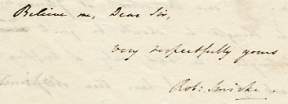 Believe me, Dear Sir,
very respectfully yours
Rob: Smirke.